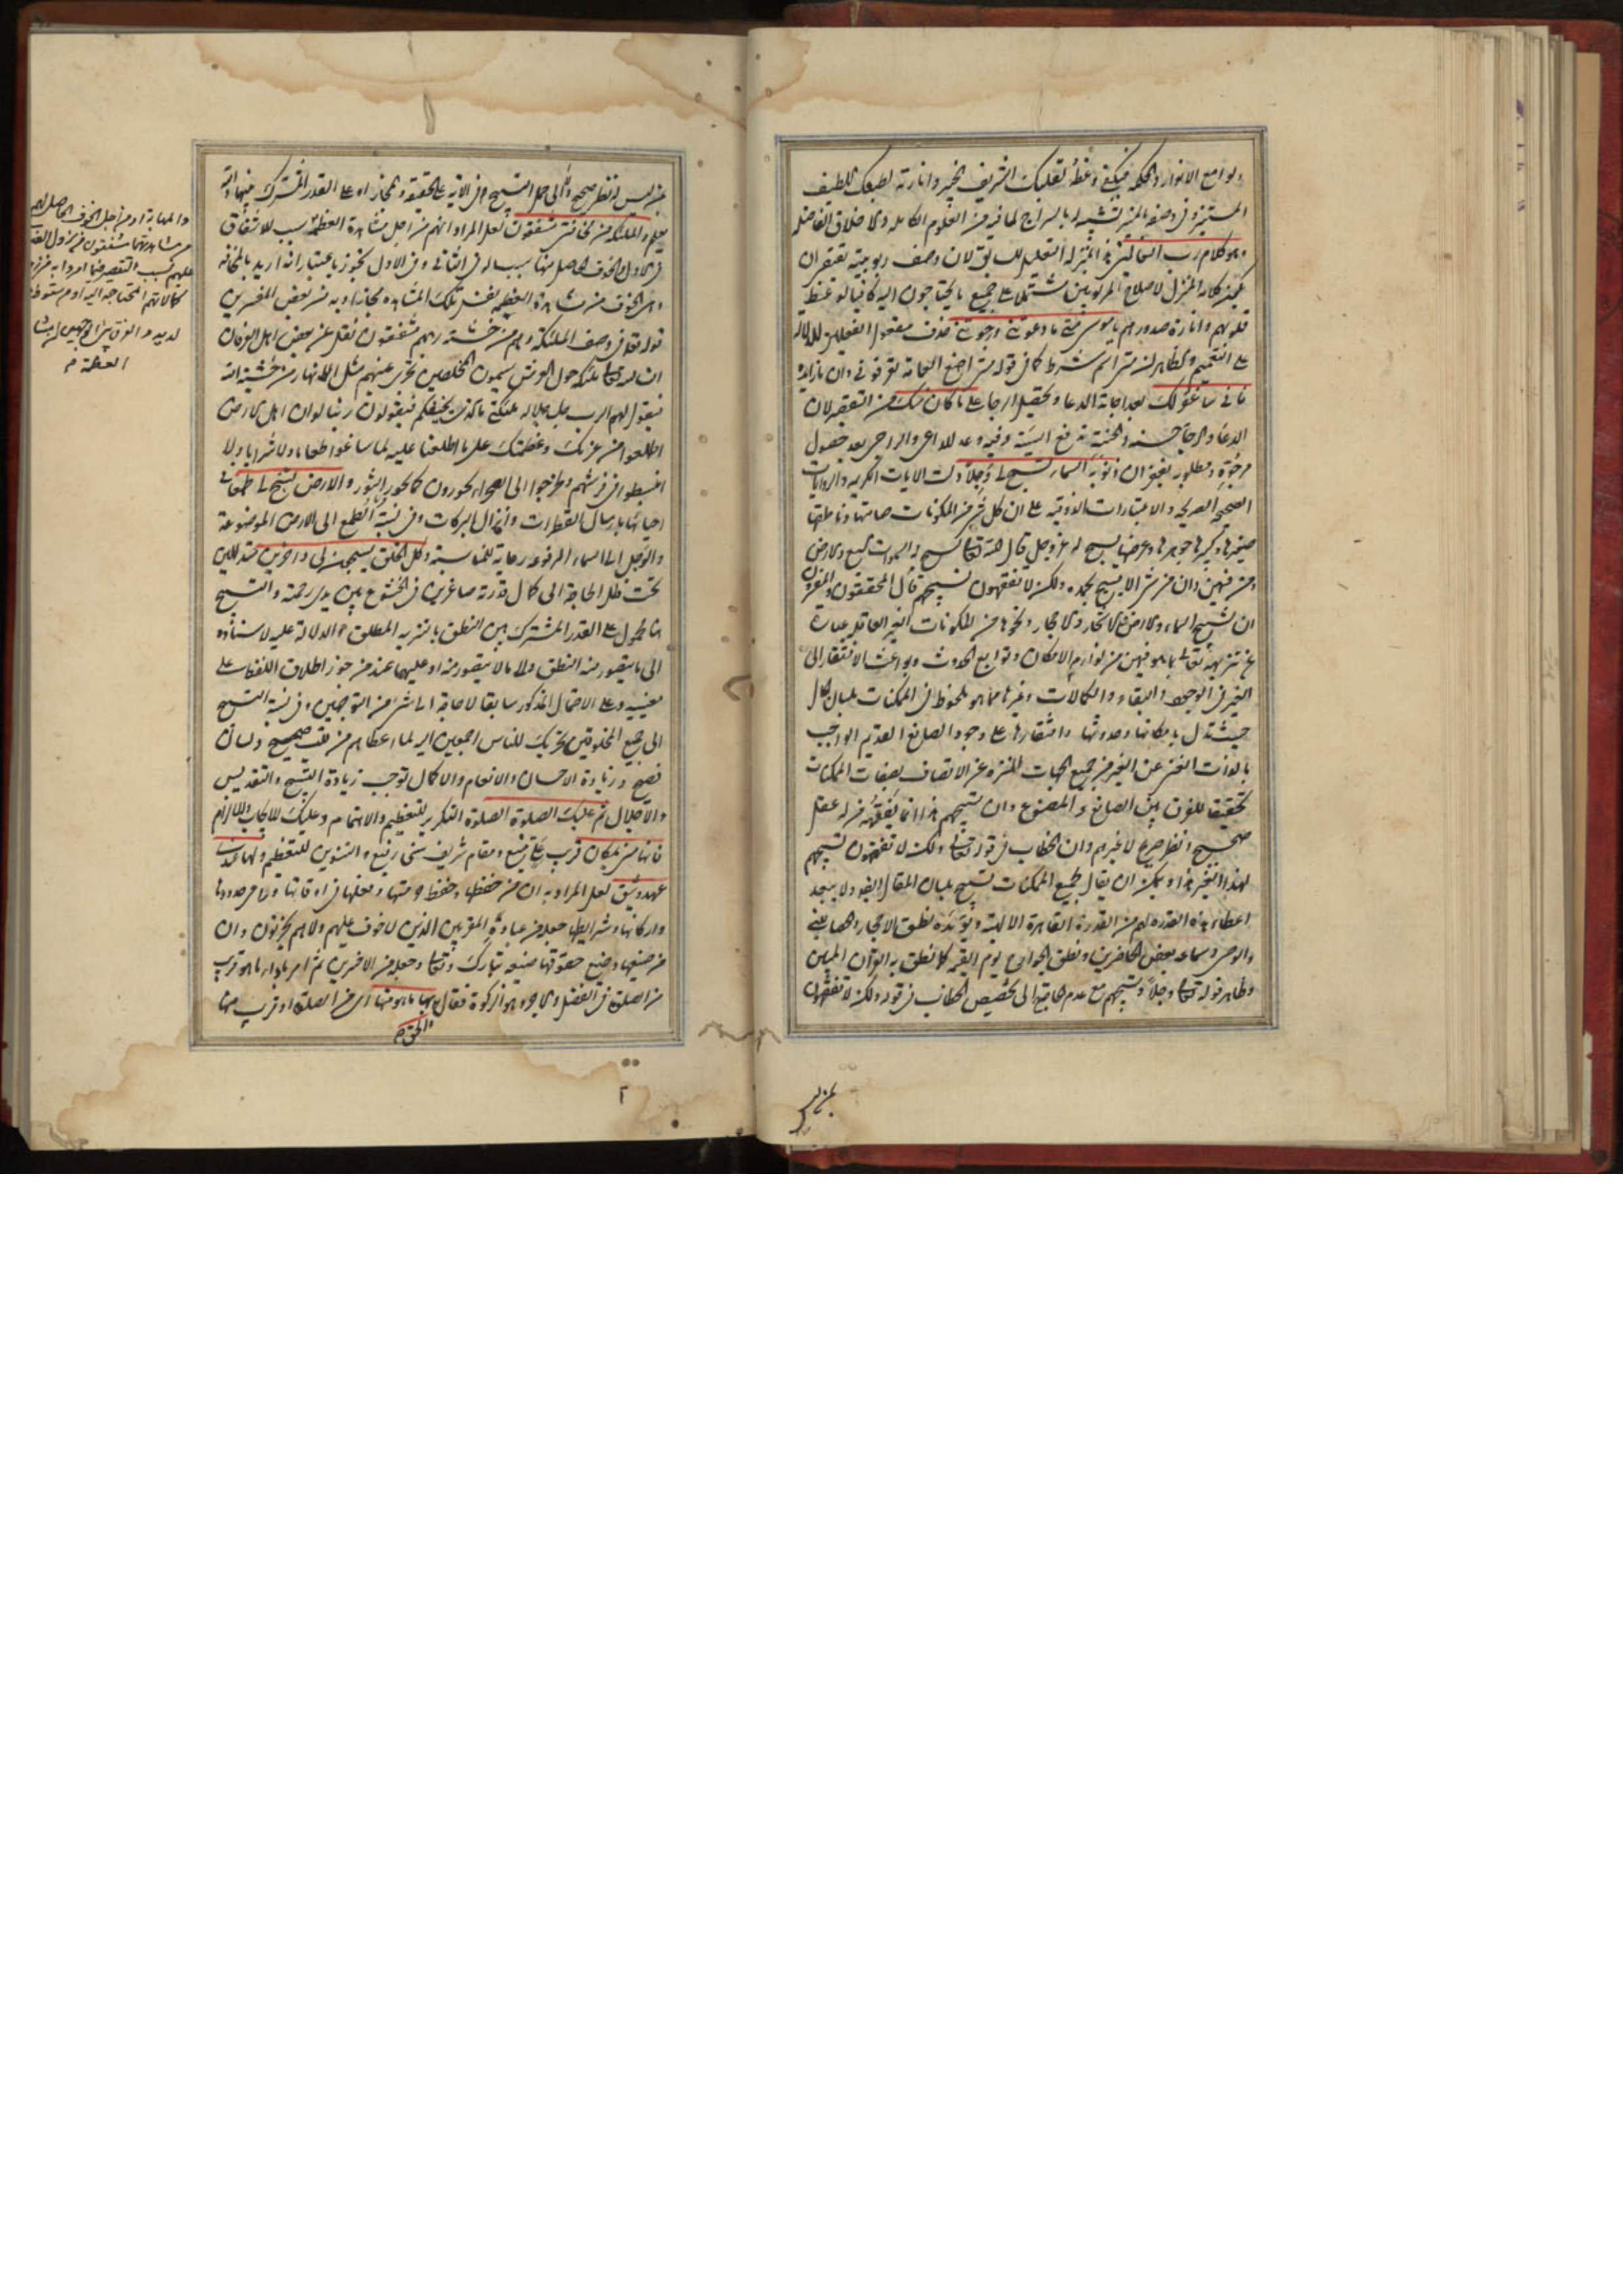 ولوامع الانوار والحكمة فيكفي وعظه لقلبك الشريف الخبير وانارته لطبعك اللطيف
المستنير وفي وصفه بالمنير تشبيه له بالسراج لما فيه من العلوم الكاملة والاخلاق الفاضلة
وهو كلام رب العالمين هذا بمنزلة التعليل للسابق لان وصف ربوبيته يقتضي ان
يكون كلامه المنزل لاصلاح المربوبين مشتملا على جميع ما يحتاجون اليه كافيا لوعظ
قلوبهم وانارة صدورهم يا موسى متى ما دعوتني ورجوتني حذف مفعول الفعلين للدلالة
على التعميم والظاهر ان متى اسم شرط كما في قوله متى اضع العمامة تعرفوني وان ما زايدة
فاني ساغفر لك بعد اجابة الدعا وتحصيل الرجا على ما كان منك من التقصير لان
الدعاء والرجاء حسنة والحسنة ترفع السيئة وفيه وعد للداعي والراجي بعد حصول
مرجوه ومطلوبه بغفران ذنوبه السماء تسبح لي وجلا دلت الايات الكريمة والروايات
الصحيحة الصريحة والاعتبارات الذوقية على ان كل شيء من المكونات صامتها وناطقها
صغيرها وكبيرها جوهرها وعرضها يسبح له عز وجل قال الله تعالى تسبح له السموات السبع والارض
ومن فيهن وان من شيء الا يسبح بحمده ولكن لا تفقهون تسبيحهم قال المحققون والمفسرون
ان تسبيح السماء والارض والاشجار والاحجار ونحوها من المكونات الغير العاقل عبارة
عن تنزيهه تعالى عما هو فيهن من لوازم الامكان وتوابع الحدوث وبواعث الافتقار الى
الغير في الوجود والبقاء والكمالات وغيرها مما هو ملحوظ في الممكنات بلسان الحال
حيث تدل بامكانها وحدوثها وافتقارها على وجود الصانع القديم الواجب
بالذات الغني عن الغير من جميع الجهات المنزه عن الاتصاف بصفات الممكنات
تحقيقا للفرق بين الصانع والمصنوع وان تسبيحهم هذا انما يفقهه من له عقل
صحيح ونظر صريح لا غيرهم وان الخطاب في قوله تعالى ولكن لا تفقهون تسبيحهم
لهذا الغير هذا ويمكن ان يقال لجميع الممكنات تسبيح بلسان المقال ايضا ولا يبعد
اعطاء هذه القدرة لهم من القدرة القاهرة الالهية ويؤيده نطق الاحجار والحصا للنبي
والوصي وسماعه بعض الحاضرين ونطق الجوارح يوم القيمة كما نطق به القران المبين
وظاهر قوله تعالى وجلا وتسبيحهم مع عدم الحاجة الى تخصيص الخطاب في قوله ولكن لا تفقهون
عن ليس له نظر صحيح والى حمل التسبيح في الاية على الحقيقة والمجاز او على القدر المشترك بينهما والله
يعلم والملئكة من مخافتي مشفقون لعل المراد انهم من اجل مشاهدة العظمة سبب للاشفاق
في الاول والخوف الحاصل منها سبب له في الثاني وفي الاول تجوز باعتبار انه اريد بالمخافة
وهي الخوف من مشاهدة العظمة نفس تلك المشاهدة مجازا وبه فسر بعض المفسرين
قوله تعالى في وصف الملئكة وهم من خشية ربهم مشفقون نقل عن بعض اهل العرفان
ان لله تعالى ملئكة حول العرش يسمون المخلصين تجري عينهم مثل الانهار من خشية الله
فيقول لهم الرب جل جلاله ملئكتي ما الذي يخيفكم فيقولون ربنا لو ان اهل الارض
اطلعوا من عزتك وعظمتك على ما اطلعنا عليه لما ساغوا طعاما ولا شرابا ولا
انبسطوا في فرشهم وخرجوا الى الصحراء يخورون كما يخور الثور والارض تسبح لي طمعا في
احيائها بارسال القطرات وانزال البركات وفي نسبة الطمع الى الارض الموضوعة
والوجل الى السماء المرفوعة رعاية للمناسبة وكل الخلق يسبحون لي داخرين متذللين
تحت ظل الحاجة الى كمال قدرته صاغرين في الخشوع بين يدي رحمته والتسبيح
هنا محمول على القدر المشترك بين النطق بالتنزيه المطلق والدلالة عليه لاسناده
الى ما يتصور منه النطق والى ما لا يتصور منه او عليهما عند من جوز اطلاق اللفظ على
معنييه وعلى الاحتمال المذكور سابقا لا حاجة الى شيء من التوجيهين وفي نسبة التسبيح
الى جميع المخلوقين تحريك للناس اجمعين اليه لما اعطاهم من قلب صحيح ولسان
فصيح وزيادة الاحسان والانعام والاكمال توجب زيادة التسبيح والتقديس
والاجلال ثم عليك الصلوة الصلوة التكرير للتعظيم والاهتمام وعليك للايجاب والالزام
فانها مني بمكان قريب علي منيع ومقام شريف سني رفيع والتنوين للتعظيم ولها عندي
عهد وثيق لعل المراد به ان من حفظها وحفظ حرمتها وفعلها في اوقاتها وراعى حدودها
واركانها وشرايطها جعله من عباده المقربين الذين لا خوف عليهم ولا هم يحزنون وان
من ضيعها وضيع حقوقها ضيعه تبارك وتعالى وجعله من الاخسرين ثم امر باداء ما هو قريب
من الصلوة في الفضل والاجر وهو الزكوة فقال والحق بها ما هو منها اي من الصلوة او قريب منها
والمهابة او من اجل الخوف الحاصل لهم
من مشاهدتها مشفقون من نزول العذاب
عليهم بسبب التقصير فيما امروا به من
كمالاتهم المحتاجة اليه او من سقوط
لديه والفرق بين الوجهين ان مشاهدة
العظمة م